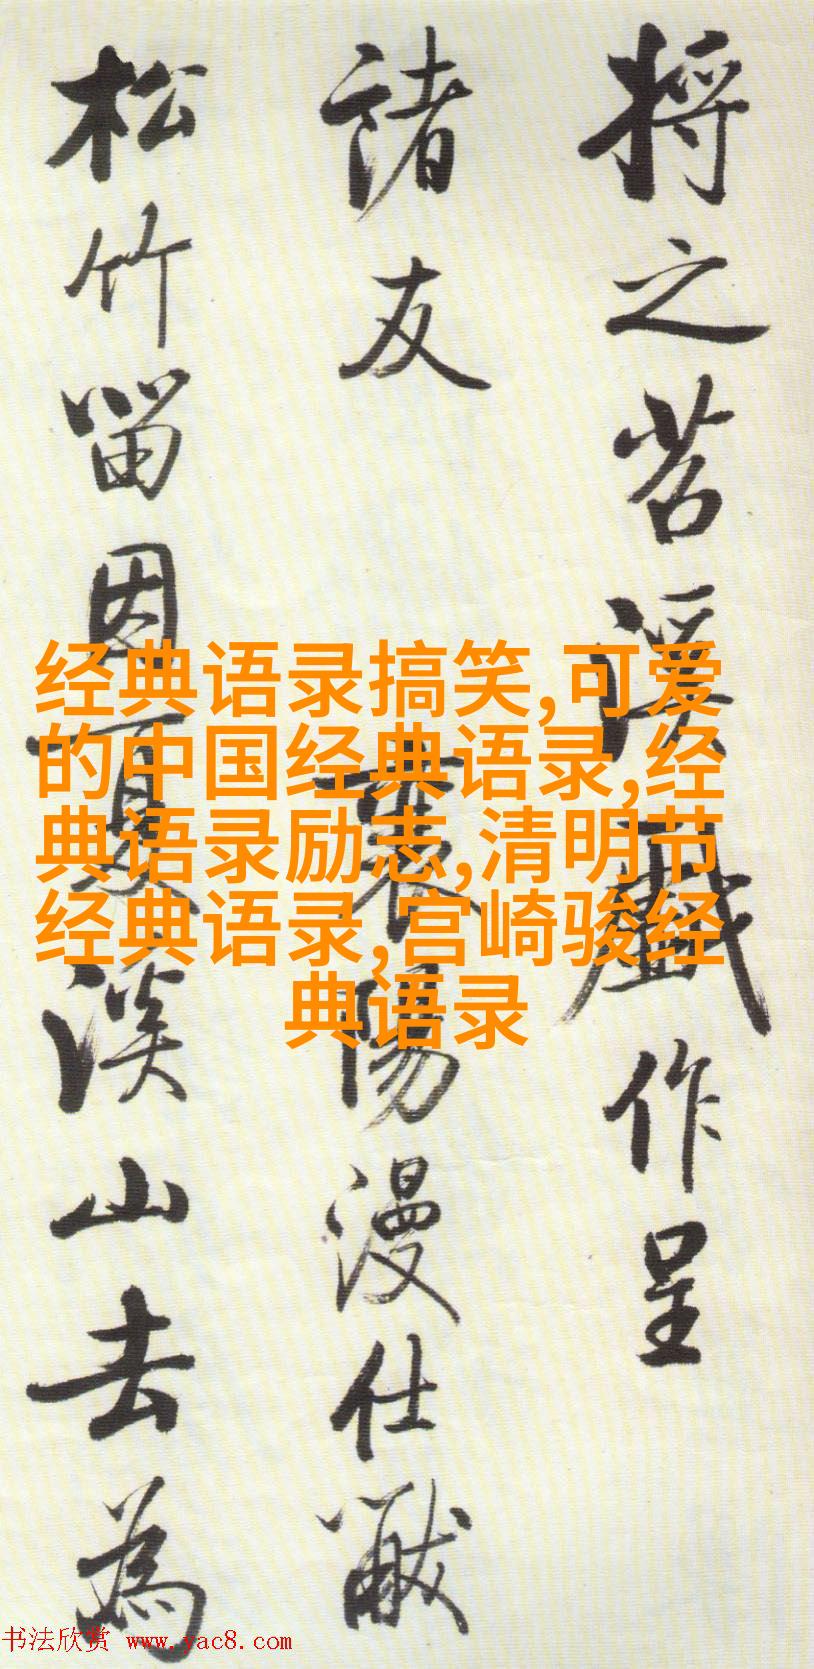 將之苕溪戲作呈
諸友 襄陽漫仕黻
松竹留因夏溪山去為
经典语录搞笑,可爱
的中国经典语录,经
典语录励志,清明节
经典语录,宫崎骏经
典语录
书法欣赏 www.yac8.com